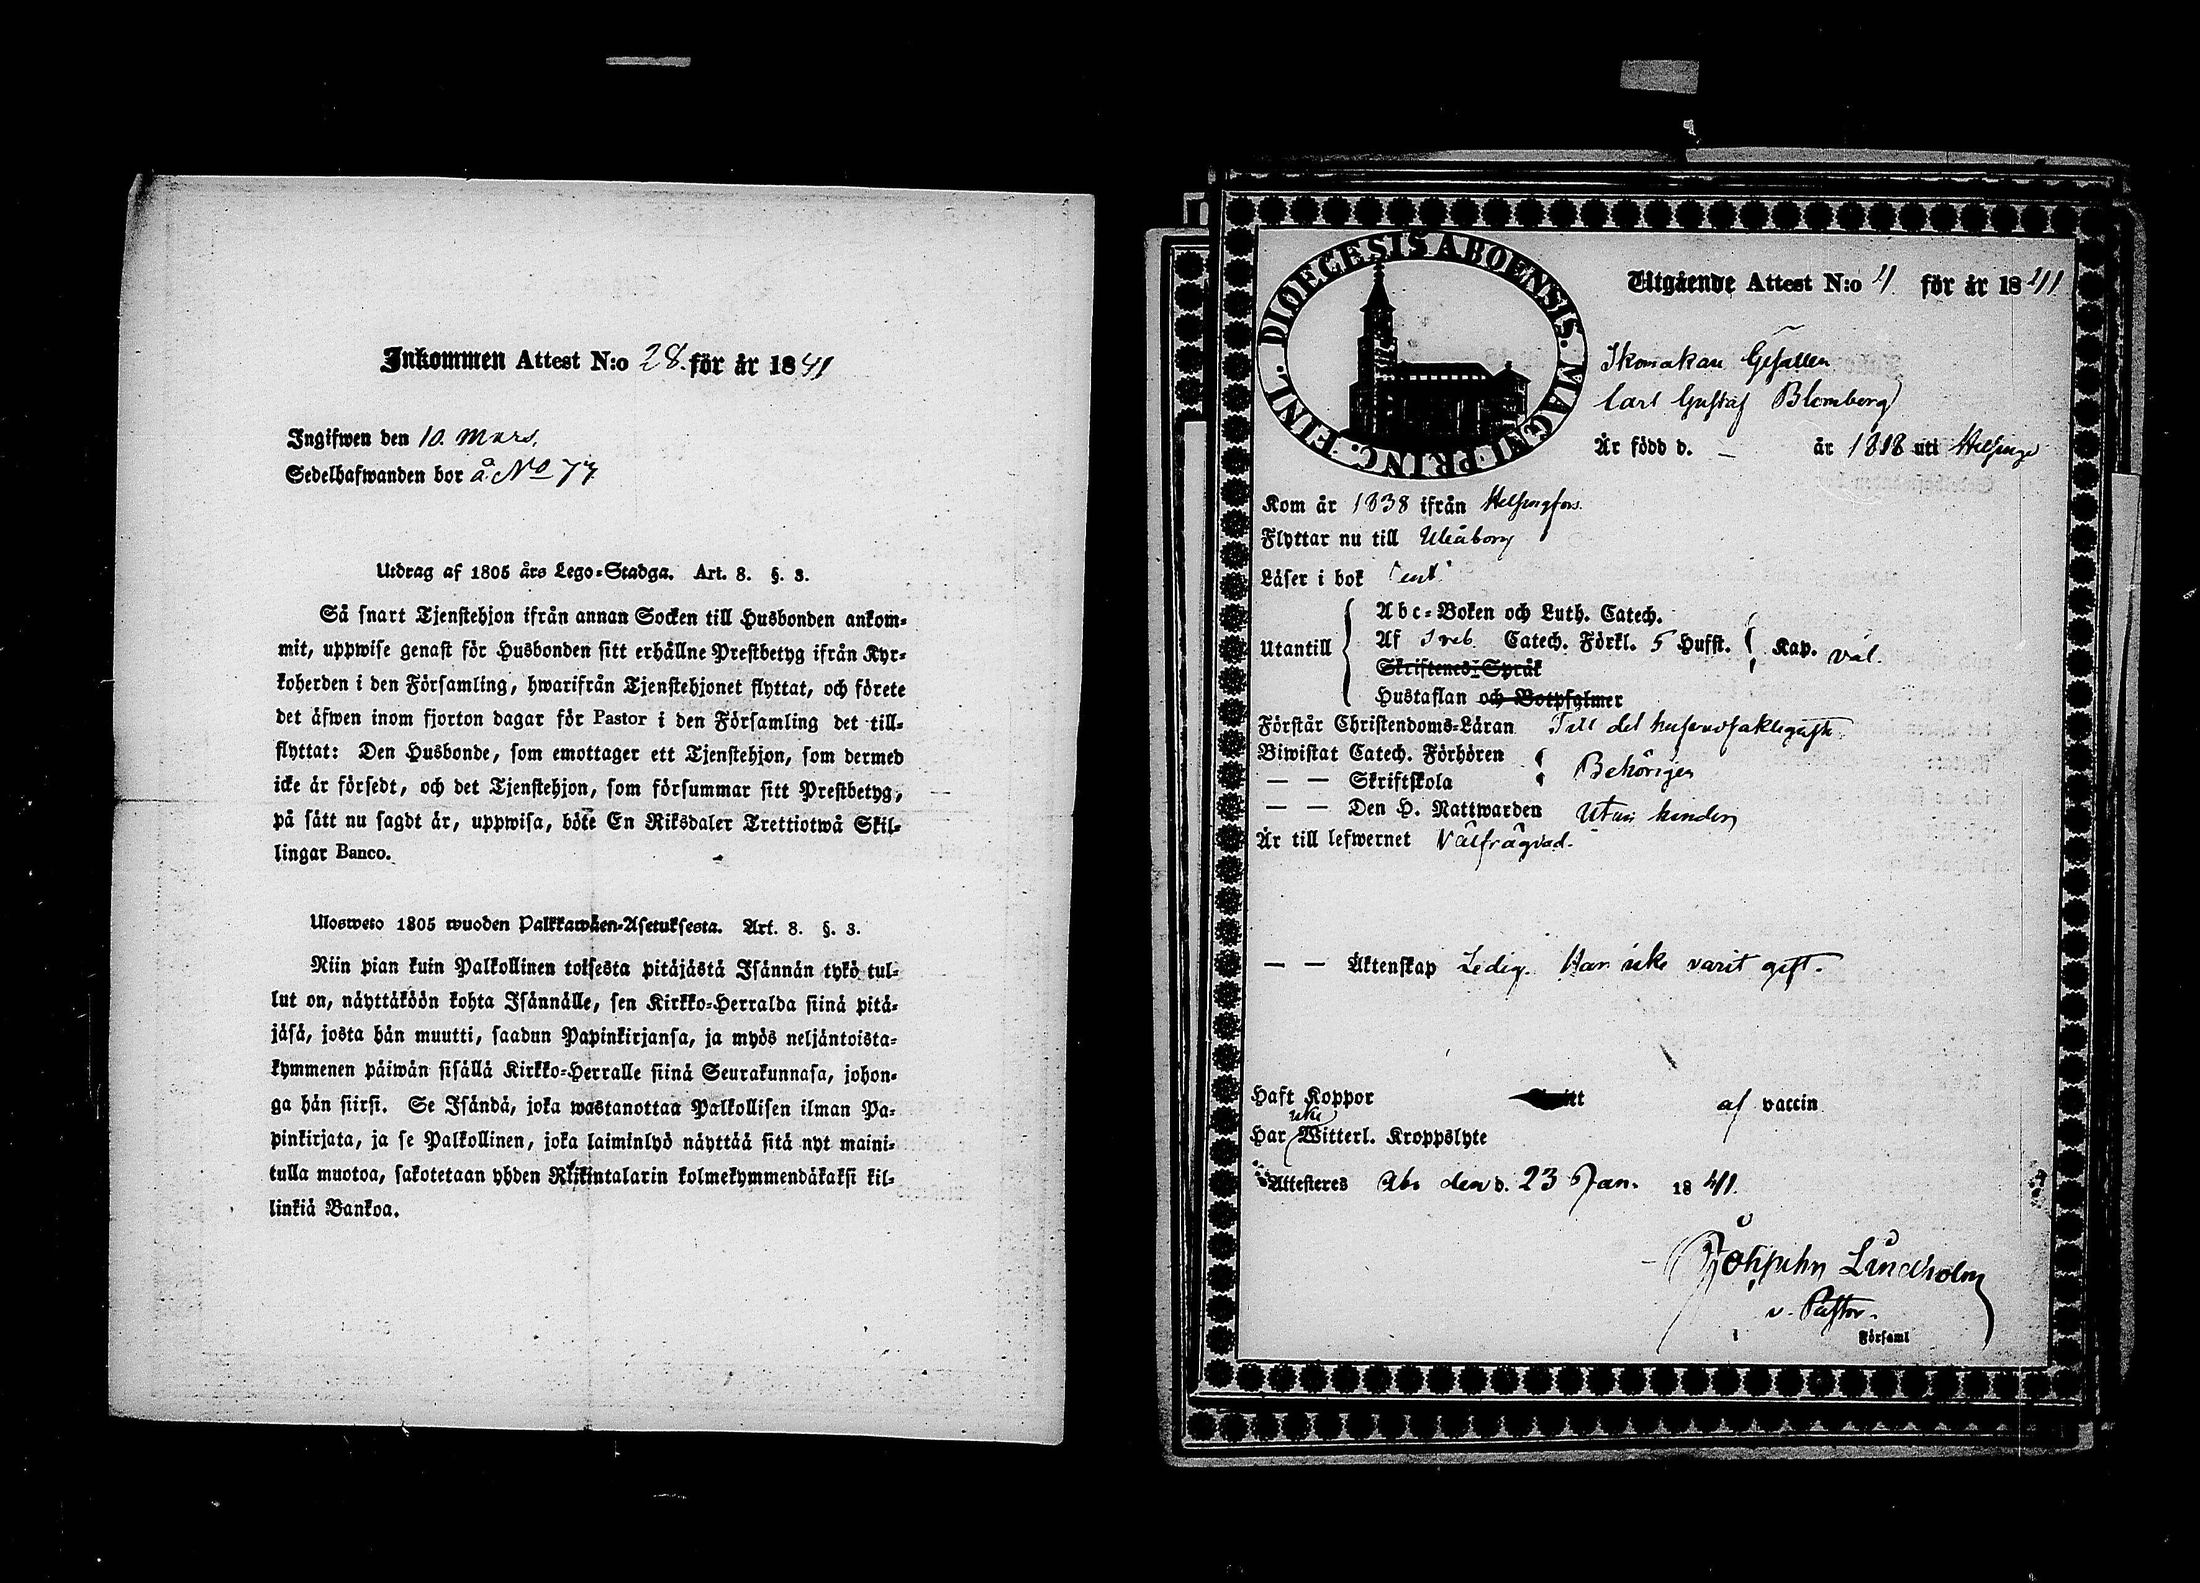 Inkommen Attest N:o 28. för år 1841
Ingifwen den 10. Mars.
Sedelhafwanden bor å No 77
Utdrag af 1805 års Lego-Stadga. Art. 8. §. 3.
Så snart Tjenstehjon ifrån annan Socken till Husbonden ankom-
mit, uppwise genast för Husbonden sitt erhållne Prestbetyg ifrån Kyr-
koherden i den Församling, hwarifrån Tjenstehjonet flyttat, och förete
det äfwen inom fjorton dagar för Pastor i den Församling det till-
flyttat: Den Husbonde, som emottager ett Tjenstehjon, som dermed
icke är försedt, och det Tjenstehjon, som försummar sitt Prestbetyg,
på sätt nu sagdt är, uppwisa, böte En Riksdaler Trettiotwå Skil-
lingar Banco.
Ulosweto 1805 wuoden Palkkawäen-Asetuksesta. Art. 8. §. 3.
Niin pian kuin Palkollinen toisesta pitäjästä Isännän tykö tul-
lut on, näyttäköön kohta Isännälle, sen Kirkko-Herralda siinä pitä-
jäsä, josta hän muutti, saadun Papinkirjansa, ja myös neljäntoista-
kymmenen päiwän sisällä Kirkko-Herralle siinä Seurakunnasa, johon-
ga hän siirsi. Se Isändä, joka wastanottaa Palkollisen ilman Pa-
pinkirjata, ja se Palkollinen, joka laiminlyö näyttää sitä nyt maini-
tulla muotoa, sakotetaan yhden Riikintalarin kolmekymmendäkaksi kil-
linkiä Bankoa.
DIOECESIS ABOENSIS. MAGNI PRINC. FINL.
Utgående Attest N:o 4. för år 1841
Skomakare Gesällen
Carl Gustaf Blomberg
Är född d. – år 1818 uti Helsinge
Kom år 1838 ifrån Helsingfors.
Flyttar nu till Uleåborg
Läser i bok
Abc-Boken och Luth. Catech.
Utantill Af Sveb. Catech. Förkl. 5 Hufst. Kap. väl.
Skriftenes-Språk
Hustaflan och Botpsalmer
Förstår Christendoms-Läran Till det
Biwistat Catech. Förhören
— — Skriftskola Behörigen
— — Den H. Nattwarden Utan hinder
Är till lefwernet Välfrägdad.
— — Äktenskap Ledig. Har icke varit gift.
Haft Koppor af vaccin
Har icke Witterl. Kroppslyte
Attesteres Åbo den d. 23 Jan. 1841.
Lindholm
v. Pastor.
i Församl